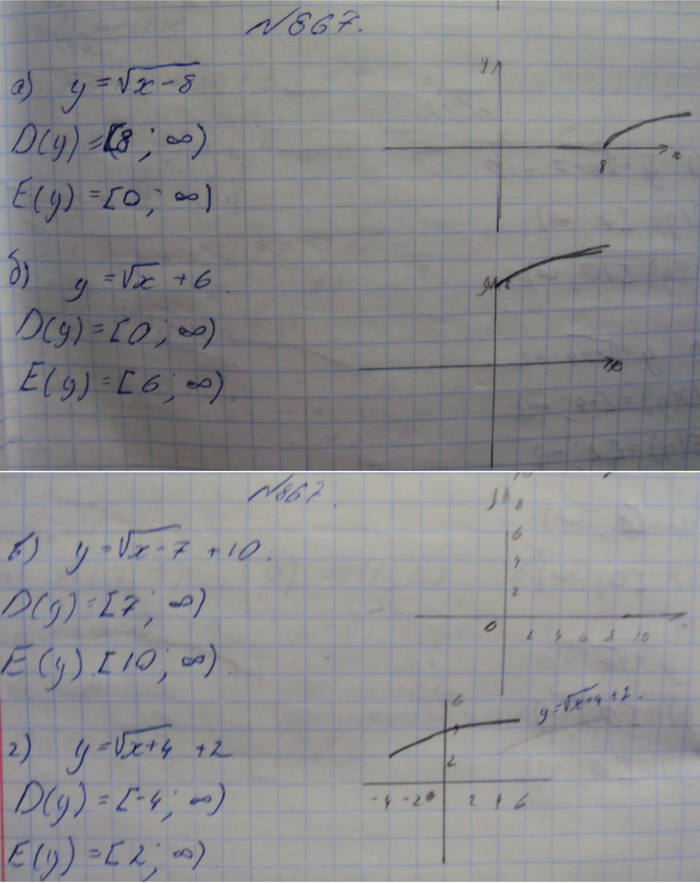 №867.
а) y = √x-8
D(y) = [8; ∞)
E(y) = [0; ∞)
y
8
x
б) y = √x + 6.
D(y) = [0; ∞)
E(y) = [6; ∞).
y
№867.
в) y = √x-7 + 10.
D(y) = [7; ∞)
E(y) [10; ∞).
10
8
6
4
2
0 2 4 6 8 10
г) y = √x+4 + 2
D(y) = [-4; ∞)
E(y) = [2; ∞)
y = √x+4 + 2.
6
2
-4 -2 0 2 4 6